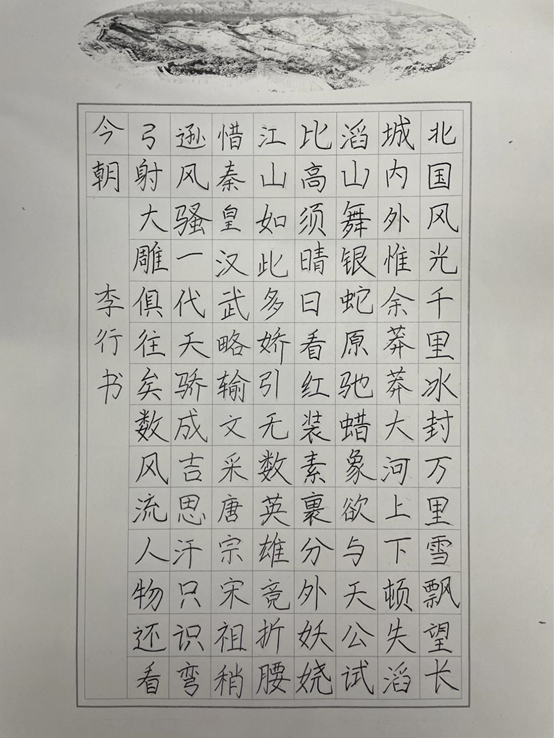 北国风光千里冰封万里雪飘望长
城内外惟余莽莽大河上下顿失滔
滔山舞银蛇原驰蜡象欲与天公试
比高须晴日看红装素裹分外妖娆
江山如此多娇引无数英雄竞折腰
惜秦皇汉武略输文采唐宗宋祖稍
逊风骚一代天骄成吉思汗只识弯
弓射大雕俱往矣数风流人物还看
今朝 李行书